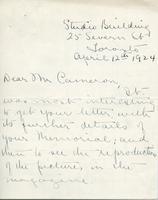 Studio Building
25 Severn St
Toronto
April 12th 1924
Dear Mr Cameron,
It
was most interesting
to get your letter with
its further details of
your Memorial, and
then to see the reproduction
of the pictures in the
magazine.